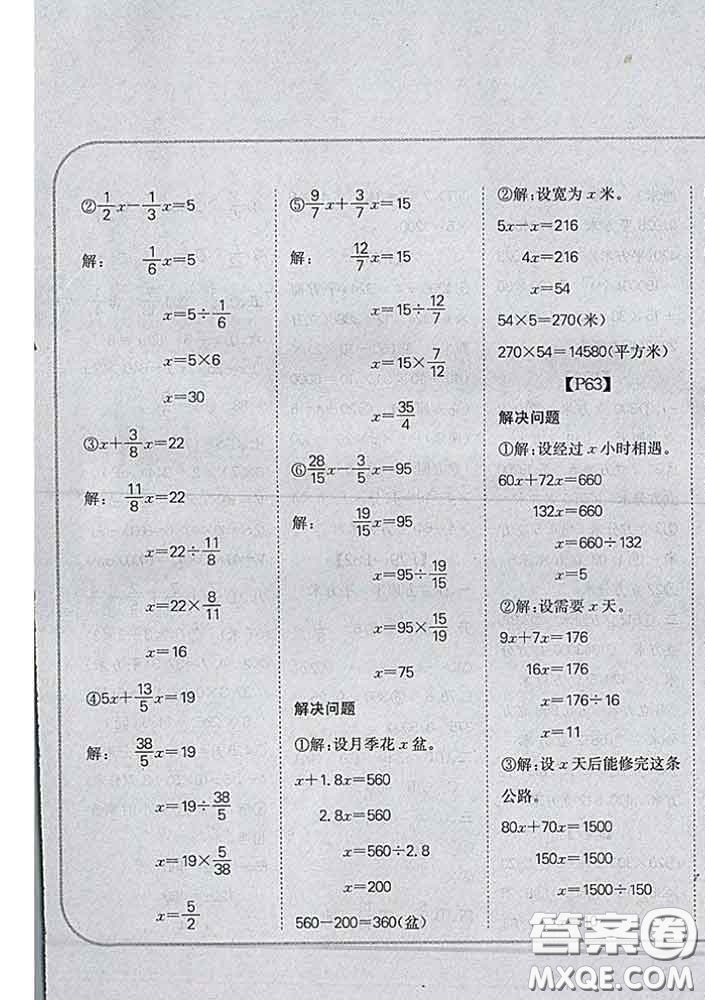 ②1/2x-1/3x=5
解: 1/6x=5
x=5÷1/6
x=5×6
x=30
③x+3/8x=22
解: 11/8x=22
x=22÷11/8
x=22×8/11
x=16
④5x+13/5x=19
解: 38/5x=19
x=19÷38/5
x=19×5/38
x=5/2
⑤9/7x+3/7x=15
解: 12/7x=15
x=15÷12/7
x=15×7/12
x=35/4
⑥28/15x-3/5x=95
解: 19/15x=95
x=95÷19/15
x=95×15/19
x=75
解决问题
①解:设月季花x盆。
x+1.8x=560
2.8x=560
x=560÷2.8
x=200
560-200=360(盆)
②解:设宽为x米。
5x-x=216
4x=216
x=54
54×5=270(米)
270×54=14580(平方米)
【P63】
解决问题
①解:设经过x小时相遇。
60x+72x=660
132x=660
x=660÷132
x=5
②解:设需要x天。
9x+7x=176
16x=176
x=176÷16
x=11
③解:设x天后能修完这条
公路。
80x+70x=1500
150x=1500
x=1500÷150
答案圈
MXQE.COM